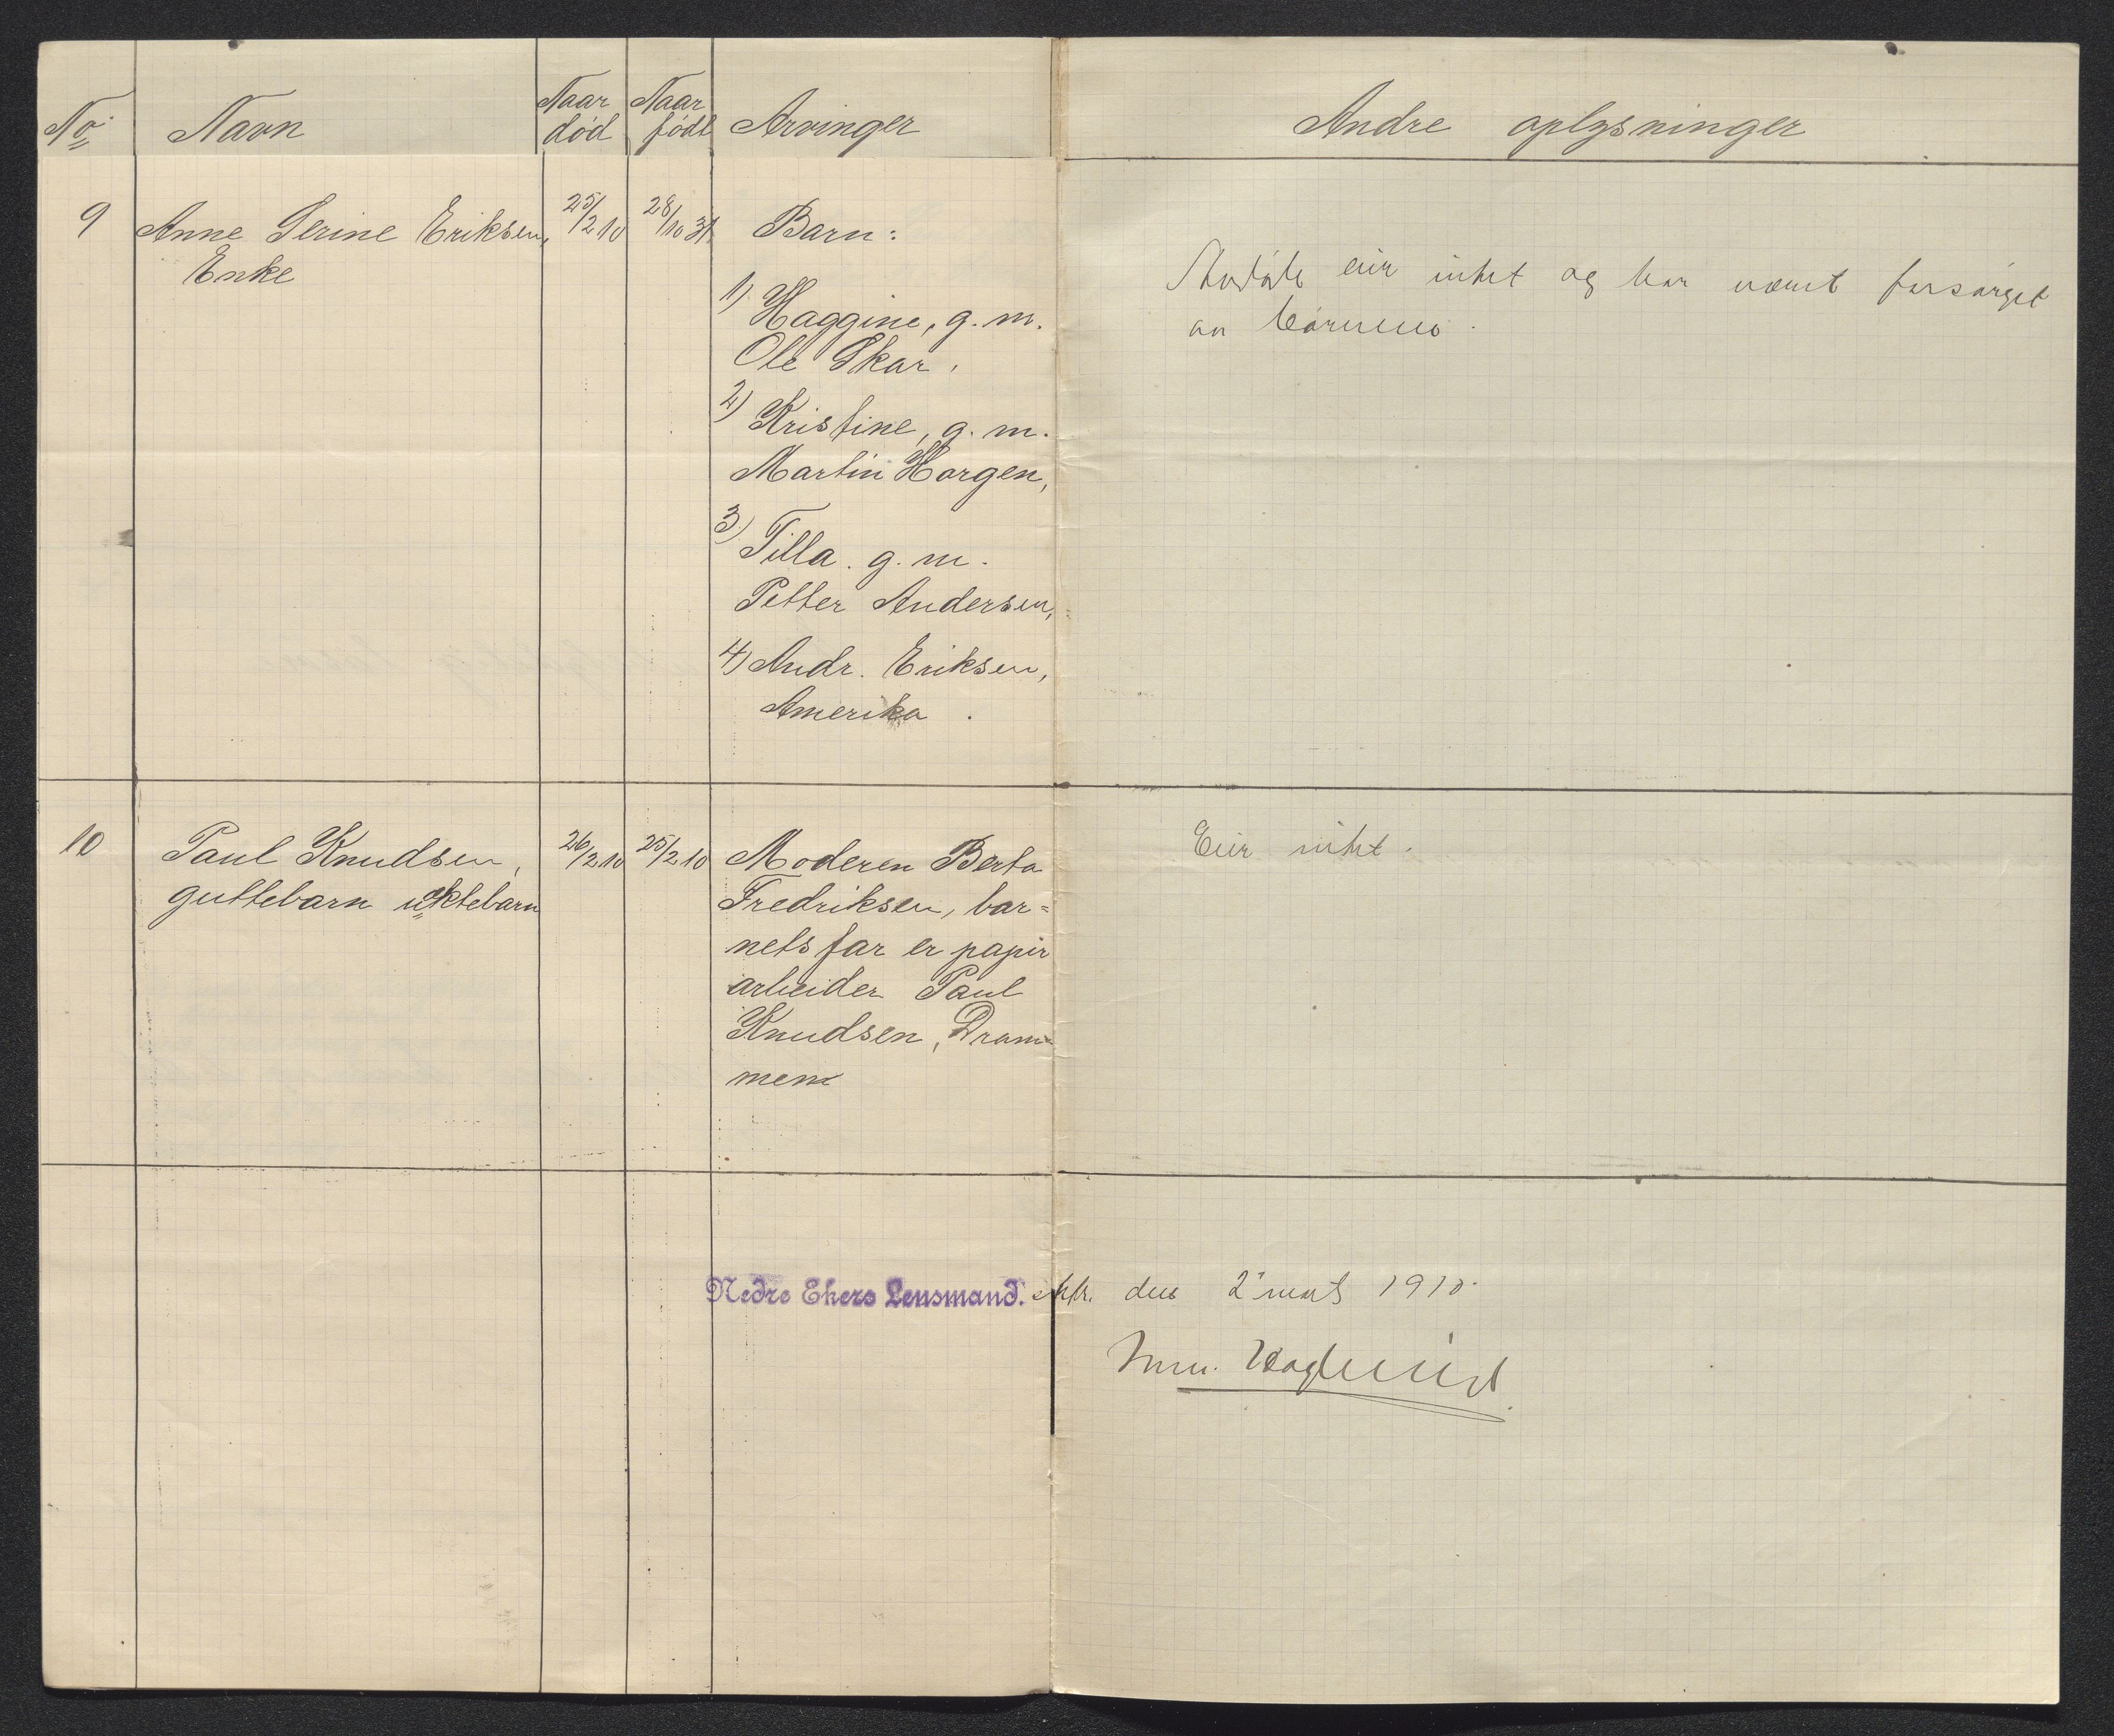 No Navn Naar død Naar født Arvinger Andre oplysninger
9 Anne Serine Eriksen, 25/2 10 28/10 31. Barn:
Enke
1) Haggine, g. m.
Ole Skar,
2) Kristine, g. m.
Martin Horgen,
3) Tilla. g. m.
Petter Andersen,
4) Andr. Eriksen,
Amerika.
Avdøde eier intet og har vært forsørget
av børnene.
10 Paul Knudsen, 26/2 10 25/2 10 Moderen Berta
guttebarn uektebarn
Fredriksen, bar=
nets far er papir
arbeider Paul
Knudsen, Dram=
men
Eier intet.
Nedre Ekers Lensmand. den 2 mars 1910.